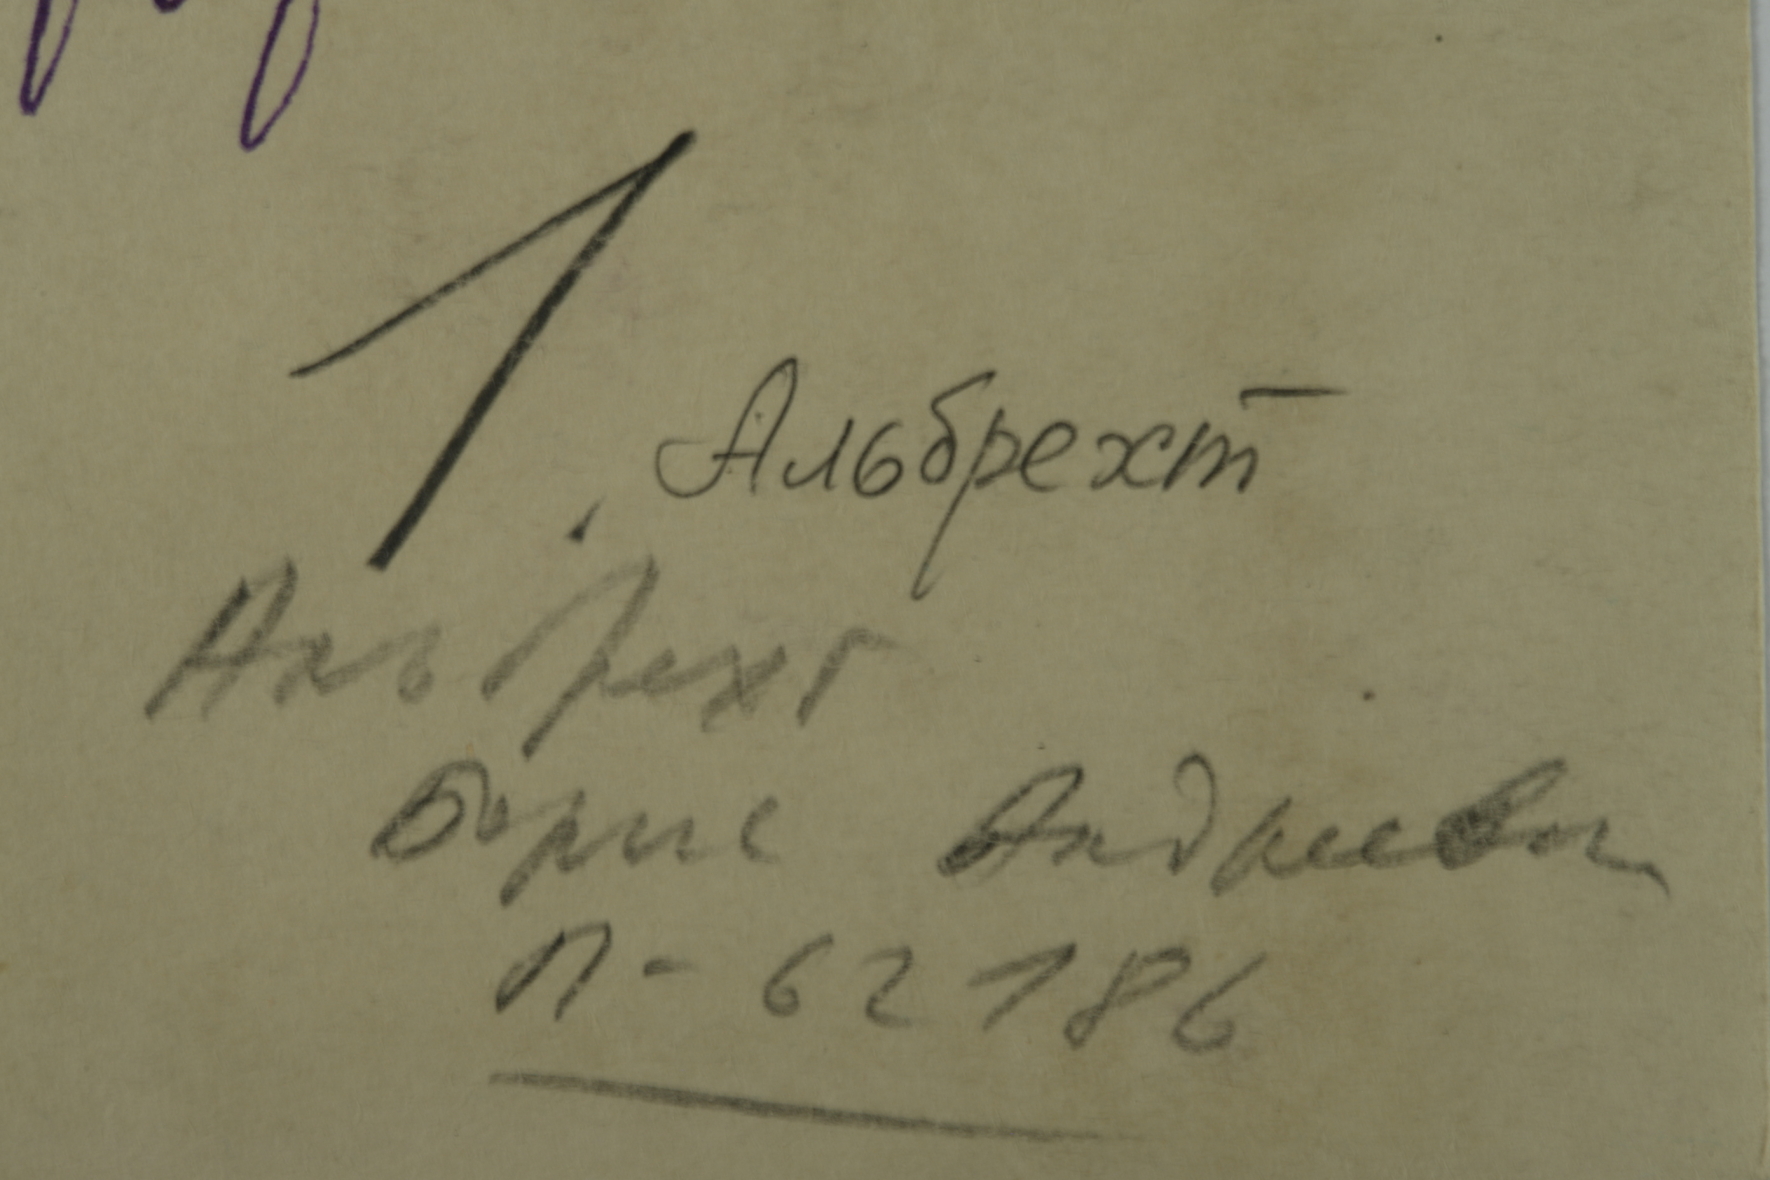 1.
Альбрехт
Альбрехт
Борис Андреевич
П-62186